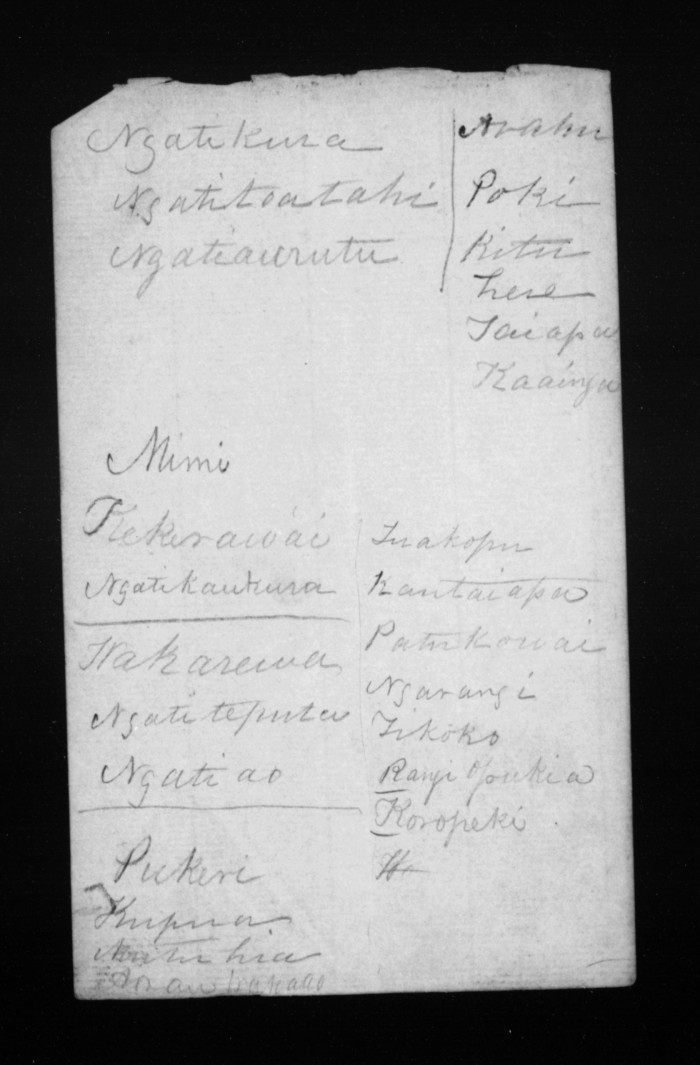 Ngatikura
Ngatitoatahi
Ngatiaurutu
Arahu
Poki
Kitu
here
Taiapa
Kaainga
Mimi
Kekerawai
Ngatikaukura
Wakarewa
Ngatiteputa
Ngatiao
Tuakopu
Kautaiapa
Patukowai
Ngarangi
Tikoko
Rangi Opukia
Koropeki
Pukeri
Kupua